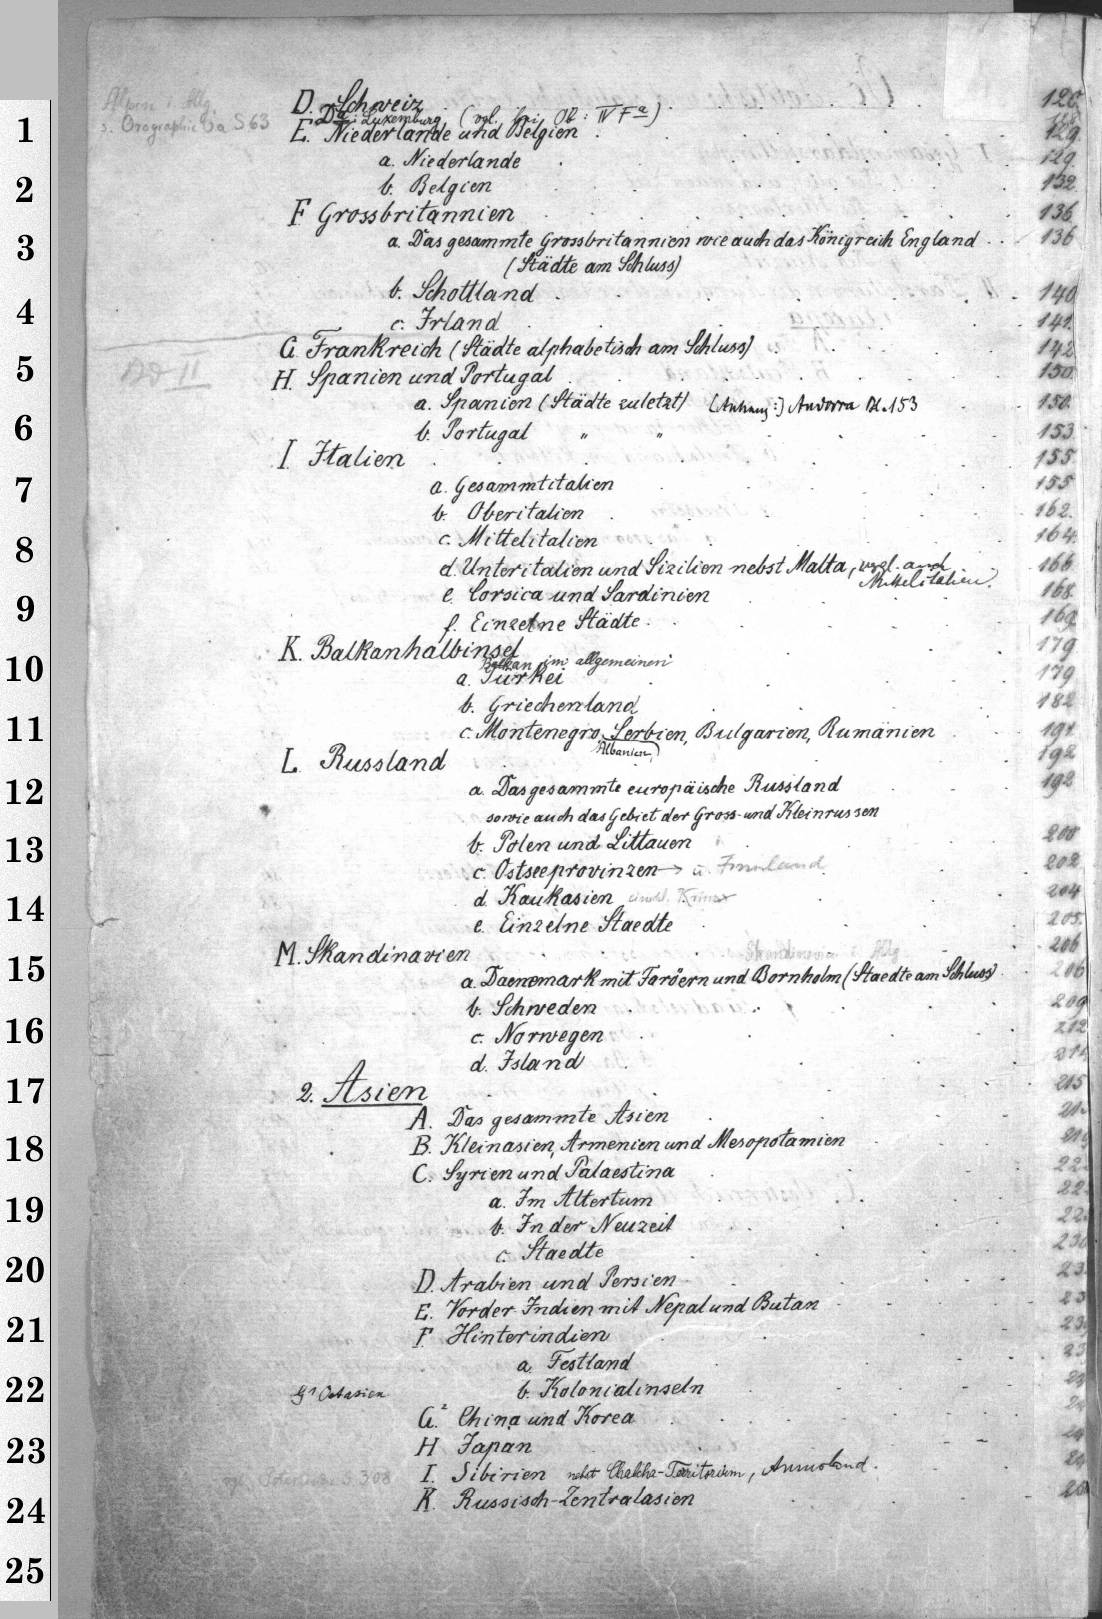 Alpen i. Allg.
s. Orographie Va S 63
D. Schweiz 126.
Da: Luxemburg, (vgl. bei Ob: IV Fa)
E. Niederlande und Belgien 129.
a. Niederlande 129.
b. Belgien 132.
F Grossbritannien 136
a. Das gesammte Grossbritannien wie auch das Königreich England 136
(Städte am Schluss)
b. Schottland 140
c. Irland 141.
G. Frankreich (Städte alphabetisch am Schluss) 142
Ad II
H. Spanien und Portugal 150.
a. Spanien (Städte zuletzt) (Anhang:) Andorra Bl. 153 150.
b. Portugal " " 153
I Italien 155
a. Gesammtitalien 155
b. Oberitalien 162.
c. Mittelitalien 164.
d. Unteritalien und Sizilien nebst Malta, vergl. auch Mittelitalien. 166
e. Corsica und Sardinien 168.
f. Einzelne Städte 169
K. Balkanhalbinsel 179
Balkan im allgemeinen
a. Türkei 179
b. Griechenland 182
c. Montenegro, Serbien, Bulgarien, Rumänien 191.
Albanien,
L Russland 192
a. Das gesammte europäische Russland 192
sowie auch das Gebiet der Gross- und Kleinrussen
b. Polen und Littauen 200
c. Ostseeprovinzen → u. Finnland 202
d. Kaukasien einschl. Krim 204
e. Einzelne Staedte 205.
M. Skandinavien Skandinavia i. Allg 206
a. Daenemark mit Faröern und Bornholm (Staedte am Schluss) 206
b. Schweden 209
c. Norwegen 212
d. Island 214
2. Asien 215
A. Das gesammte Asien
B. Kleinasien, Armenien und Mesopotamien
C. Syrien und Palaestina
a. Im Altertum
b. In der Neuzeit
c. Staedte
D. Arabien und Persien
E. Vorder-Indien mit Nepal und Butan
F Hinterindien
a. Festland
b. Kolonialinseln
G1 Ostasien
G.2 China und Korea
H Japan
I. Sibirien nebst Chalcha-Territorium, Amurland. S. 308
K. Russisch-Zentralasien
1
2
3
4
5
6
7
8
9
10
11
12
13
14
15
16
17
18
19
20
21
22
23
24
25